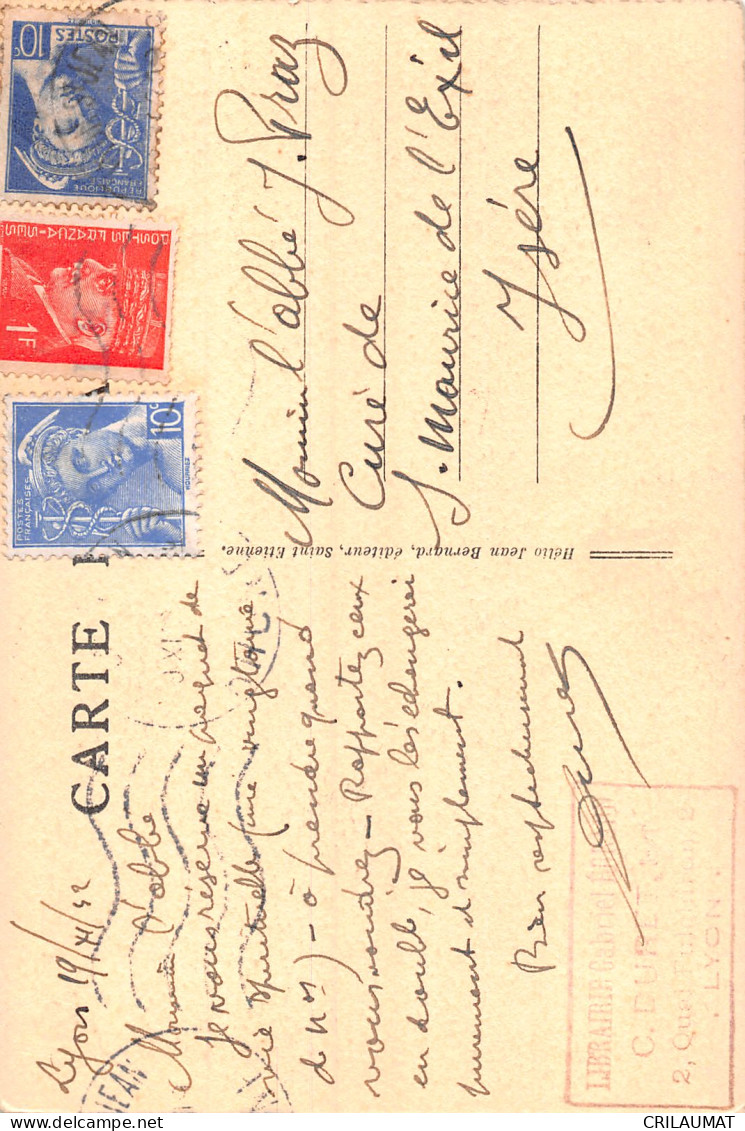 CARTE
Lyon 19/XI/42
Monsieur l'abbé
Je vous réserve un paquet de
vie spirituelle (une vingtaine
de nos) - à prendre quand
vous voudrez - Rapportez ceux
en double, je vous les échangerai
purement et simplement.
Bien respectueusement
LIBRAIRIE Gabriel
C. DURET
2, Quai
LYON
Hélio Jean Bernard, éditeur, Saint Etienne.
Monsieur l'abbé J. Praz
Curé de
S. Maurice de l'Exil
Isére
10c
POSTES
RÉPUBLIQUE
FRANÇAISE
POSTES FRANÇAISES
1F
10c
POSTES
FRANÇAISES
MOURIEZ
JEAN
CRILAUMAT